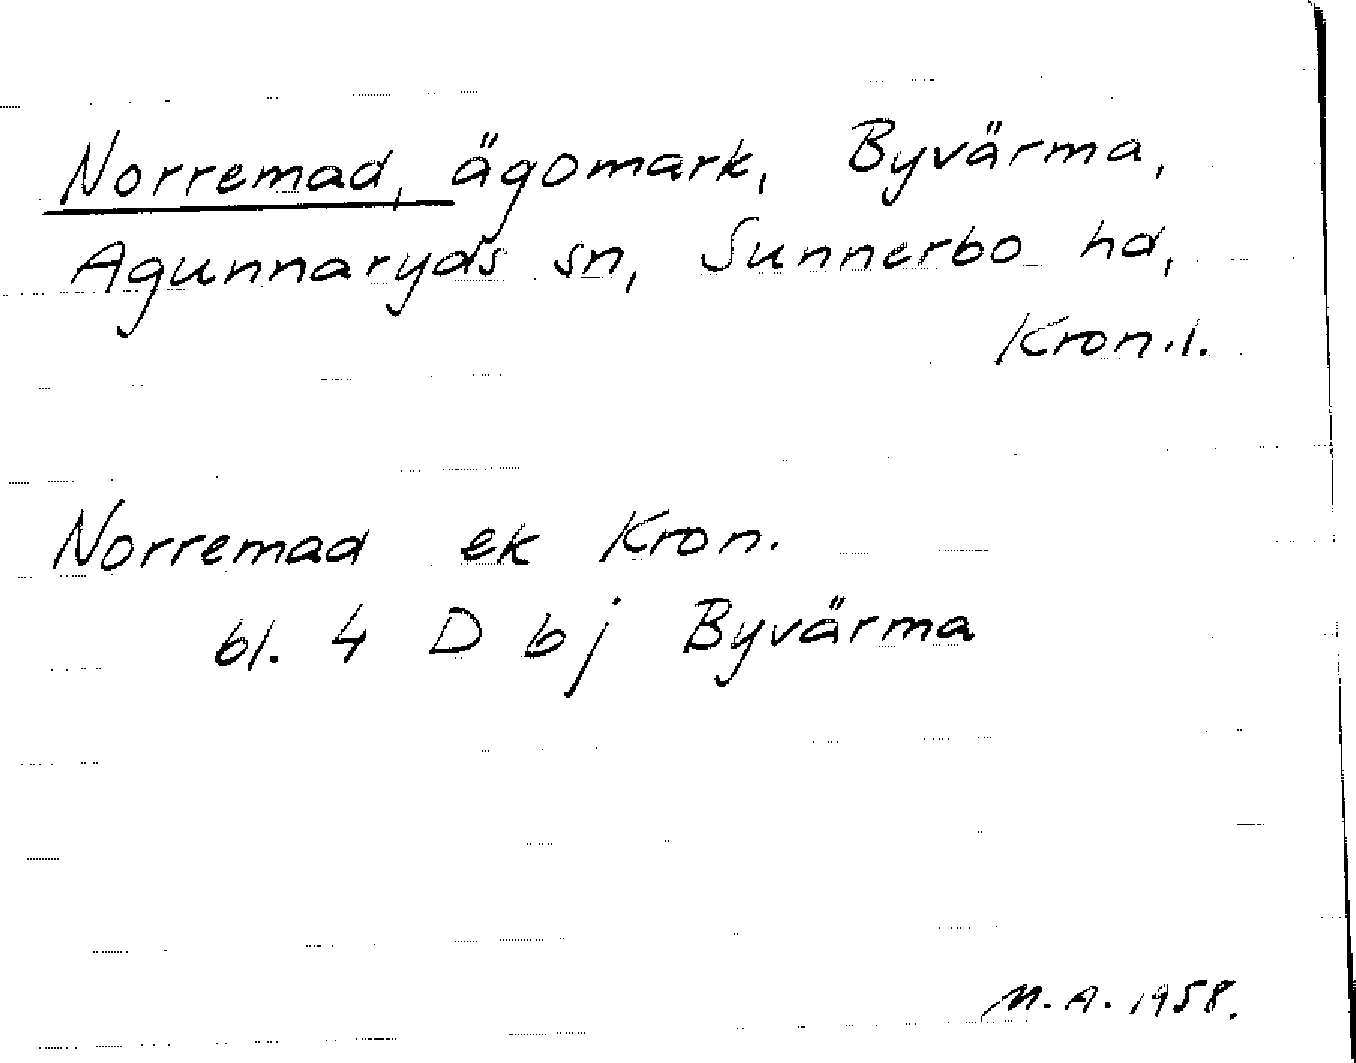 Norremad, ägomark, Byvärma,
Agunnaryds sn, Sunnerbo hd,
Kron.l.
Norremad ek Kron.
bl. 4 D bj Byvärma
M.A. 1958.